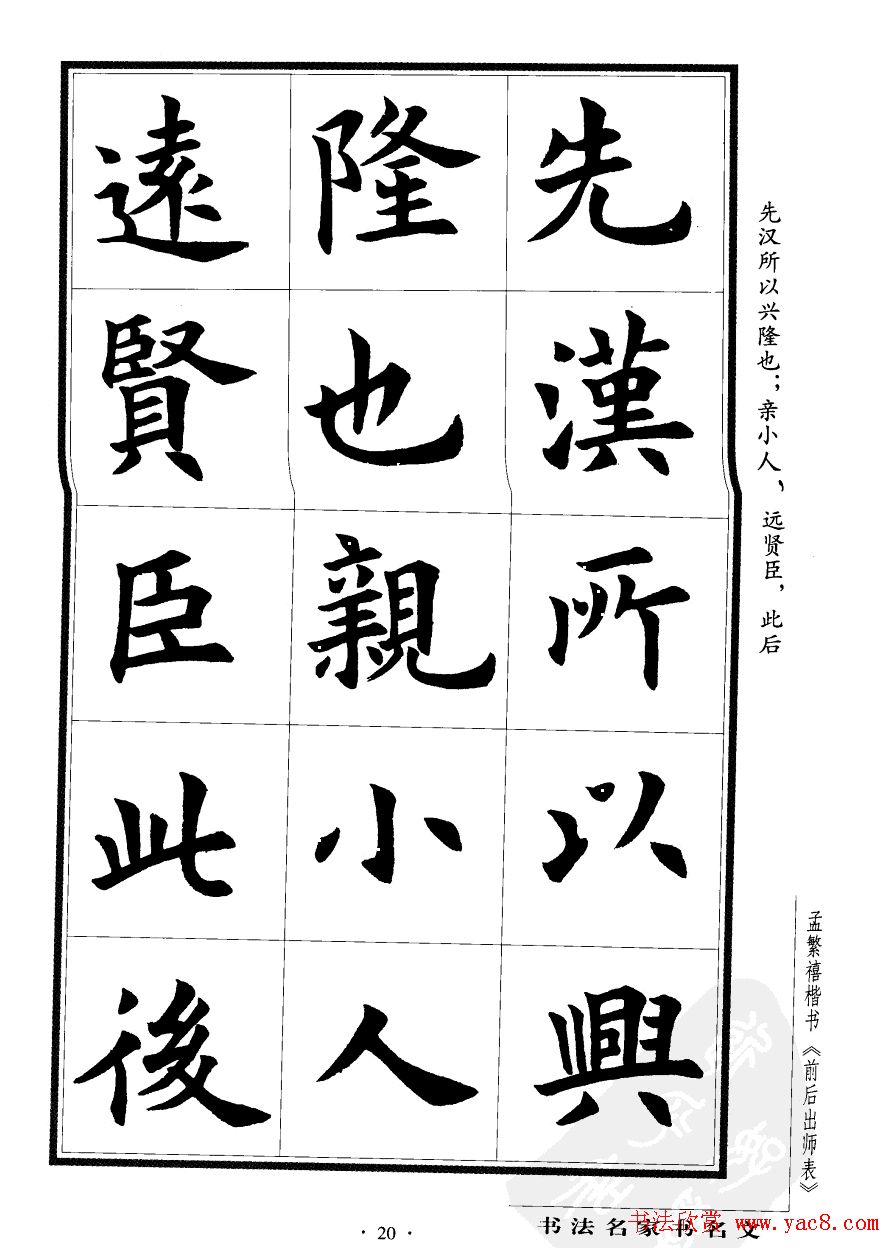 先漢所以興
隆也親小人
遠賢臣此後
先汉所以兴隆也；亲小人，远贤臣，此后
孟繁禧楷书《前后出师表》
· 20 ·
书法名家书名文
书法欣赏 www.yac8.com